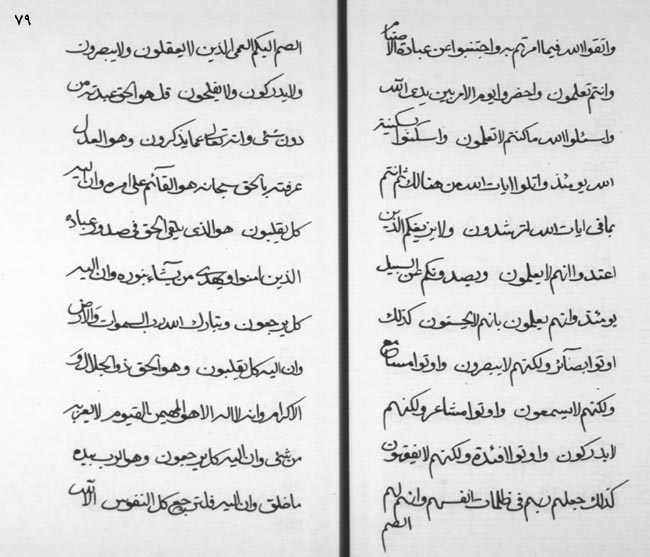 واتقوا الله فيما امرتم به واجتنبوا عن عبادة الاصنام
وانتم تعلمون واحضروا يوم الامر بين يدى الله
واسئلوا الله ما كنتم لا تعلمون واسكنوا بسكينة
الله يومئذ واتلوا ايات الله من هنالك ثم انتم
بما فى ايات الله لترشدون ولا يزيغكم الذين
اعتدوا انهم لا يعلمون ويصدونكم عن السبيل
يومئذ وانهم يعلمون بانهم لا يحسنون كذلك
اوتوا بصآئر ولكنهم لا يبصرون واوتوا مسامع
ولكنهم لا يسمعون واوتوا مشاعر ولكنهم
لا يدركون واوتوا افئدة ولكنهم لا يفقهون
كذلك جعلهم ربهم فى ظلمات انفسهم وانهم لهم
الصم
٧٩
الصم البكم العمى الذين لا يعقلون ولا يبصرون
ولا يدركون ولا يفلحون قل هو الحق عبدته من
دون شئ وانه تعالى عما يذكرون وهو العدل
عرفته بالحق سبحانه هو القآئم على امره وان اليه
كل يقلبون هو الذى يلقى الحق فى صدور عباده
الذين امنوا ويهدى من يشآء بنوره وان اليه
كل يرجعون وتبارك الله رب السموات والارض
وان اليه كل يقلبون وهو الحق ذو الجلال و
الاكرام وانه لا اله الا هو المهيمن القيوم لا يعزب
من شئ وان اليه كل يرجعون وهو الرب بيده
ما خلق وان اليه فلترجع كل النفوس